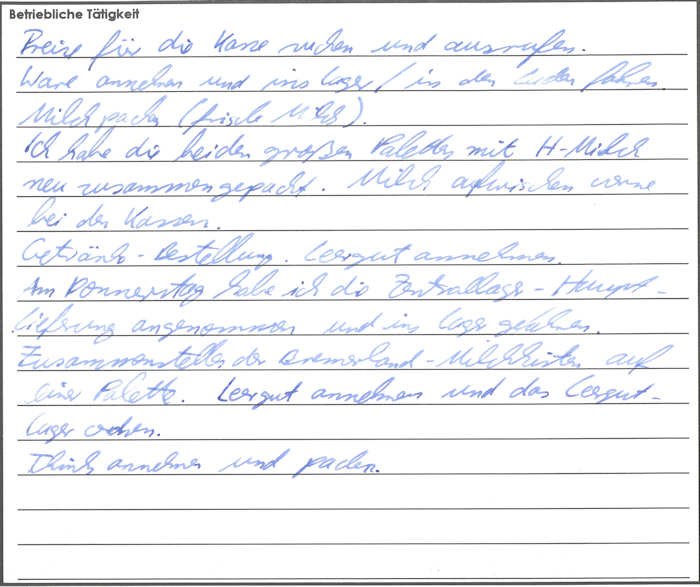 Betriebliche Tätigkeit
Preise für die Kasse suchen und ausrufen.
Ware annehmen und ins Lager / in den Laden fahren.
Milch packen (frische Milch).
Ich habe die beiden großen Paletten mit H-Milch
neu zusammengepackt. Milch aufwischen vorne
bei den Kassen.
Getränke-Bestellung. Leergut annehmen.
Am Donnerstag habe ich die Zentrallager-Haupt-
lieferung angenommen und ins Lager gefahren.
Zusammenstellen der Bremerland-Milchkisten auf
einer Palette. Leergut annehmen und das Leergut-
lager ordnen.
annehmen und packen.